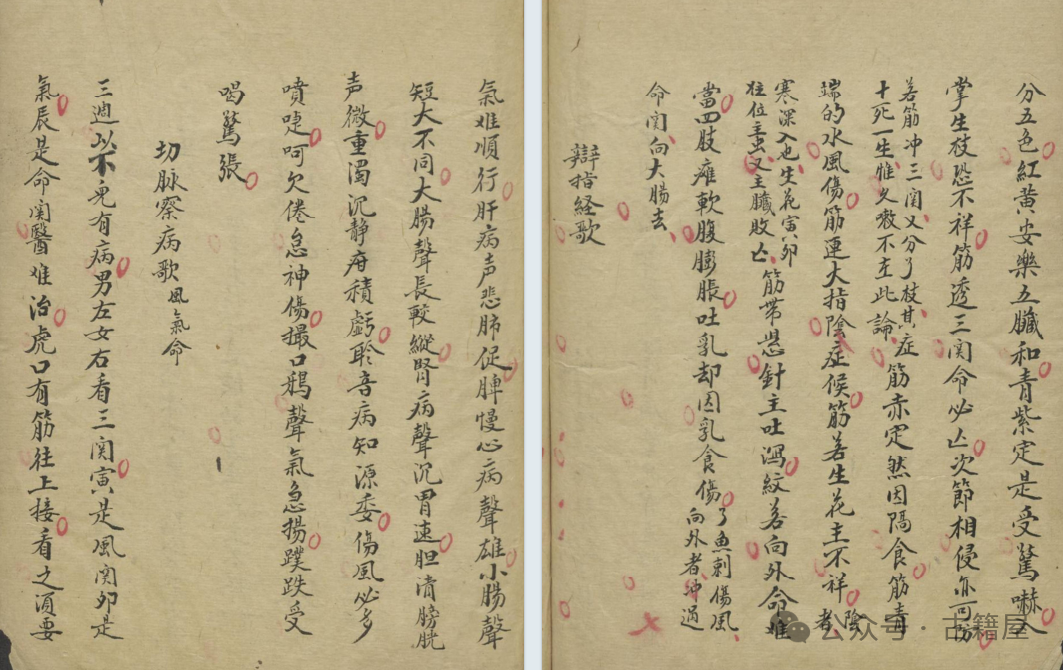 分五色紅黃安樂五臟和青紫定是受驚嚇入
掌生枝恐不祥筋透三関命必亡次節相侵亦可防
若筋冲三関又分了枝其症
十死一生惟久嗽不在此論
筋赤定然因隔食筋青
端的水風傷筋連大指陰症候筋若生花主不祥
陰
者
寒深入也生花寅卯
往位主虫又主臟敗亡
筋帶懸針主吐瀉紋若向外命難
當四肢瘫軟腹膨脹吐乳却因乳食傷
了魚刺傷風
向外者冲過
命関向大腸去
辯指経歌
氣难順行肝病声悲肺促脾慢心病聲雄小腸聲
短大不同大腸聲長較縱腎病聲沉胃速胆清膀胱
声微重濁沉静府積虧聆音病知源委傷風必多
嚏呵欠倦怠神傷撮口鴉聲氣急揚蹼跌受
喝驚張
切脉察病歌
風氣命
三週以不免有病男左女右看三関寅是風関卯是
氣辰是命関醫难治虎口有筋往上接看之須要
公众号·古籍屋